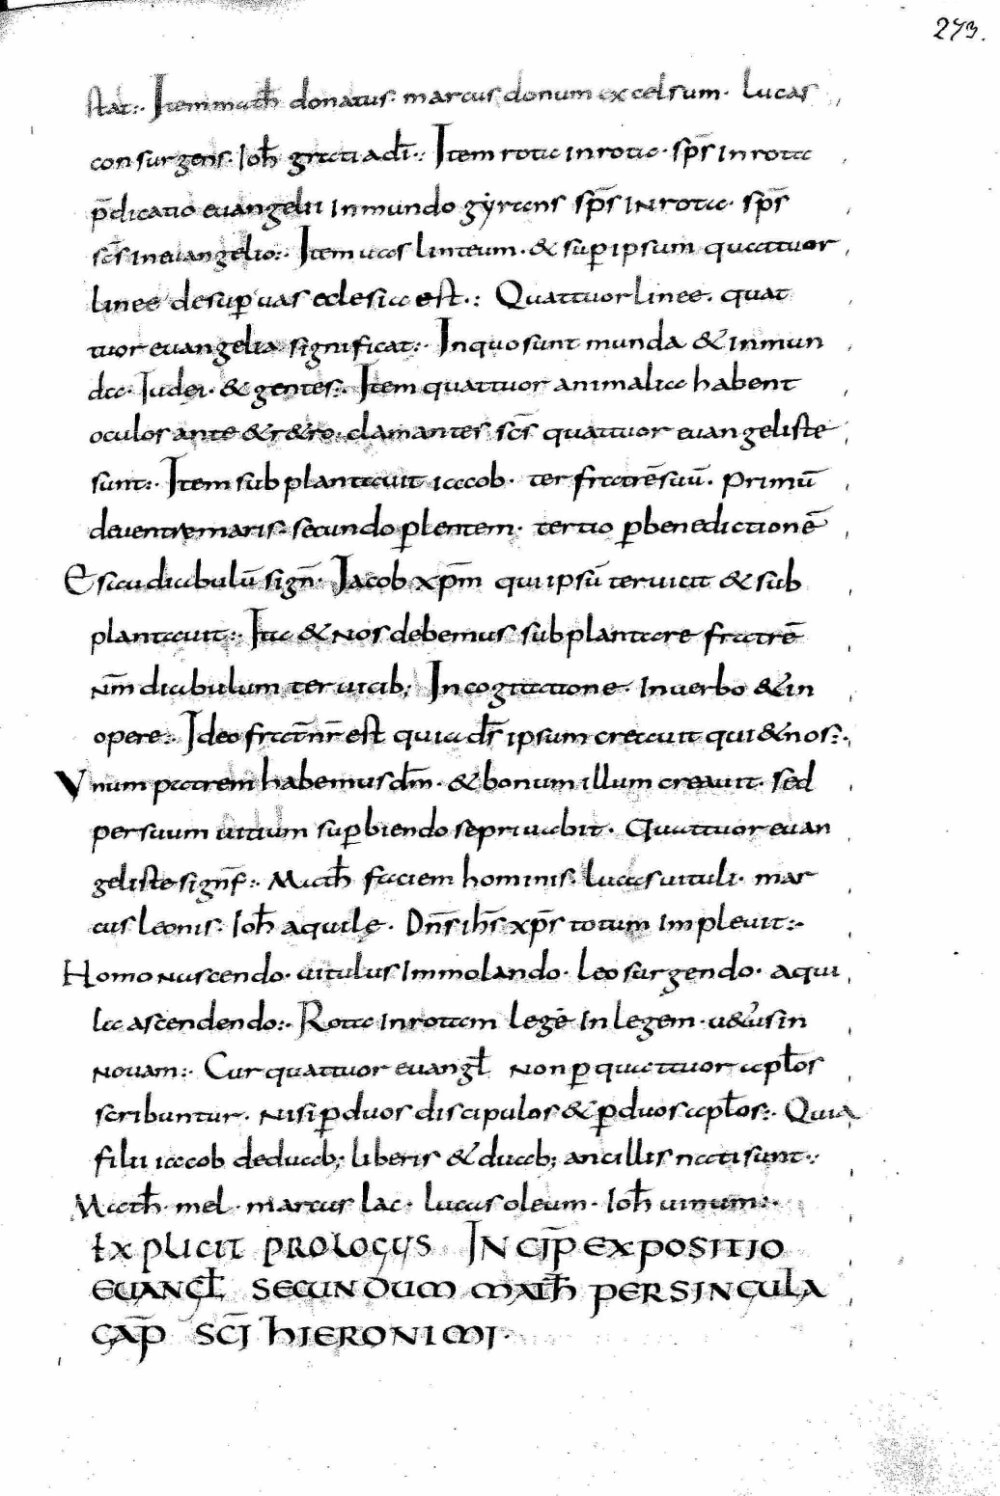 273.
stat:. Item math̄ donatus. marcus donum excelsum. Lucas
consurgens. Ioh̄ gratia dī:. Item rota in rota. sp̄s in rota
p̄dicatio euangelii in mundo gyrans sp̄s IN rota. sp̄s
sc̄s in euangelio:. Item uas linteum. & sup̱ ipsum quattuor
lineę desup̱ uas eclesia est.: Quattuor lineę. quat
tuor euangelia significat:. In quo sunt munda & inmun
da. Iudei. & gentes:. Item quattuor animalia habent
oculos ante & r&ro. clamantes sc̄s quattuor euangeliste
sunt:. Item subplantauit iacob. ter fratrē suū. Primū
de uentre matris. secundo p̱ lentem. tertio p̱ benedictionē
Esicu diabulū sign̄. Jacob xp̄m qui ipsū ter uicit & sub
plantauit:. Ita & NOS debemus subplantare fratrē
nm̄ diabulum ter uicib; In cogitatione. In uerbo & in
opere:. Ideo frat̄ nr̄ est quia dс̄ ipsum creauit qui & nos:.
Vnum patrem habemus dm̄. & bonum illum creauit. sed
per suum uitium sup̱biendo se priuabit. Quattuor euan
geliste signf̄:. Math̄ faciem hominis. Lucas uituli. mar
cus leonis. Ioh̄ aquile. Dn̄s ih̄s xp̄s totum impleuit:.
Homo nascendo. uitulus Immolando. Leo surgendo. aqui
la ascendendo:. Rota in rotam legē In legem. u&us in
NOUAM:. Cur quattuor euangl̄ non p̱ quattuor apl̄os
scribuntur. Nisi p̱ duos discipulos & p̱ duos apl̄os:. Quia
filii iacob de duab; liberis & duab; ancillis nati sunt:.
Math̄. mel. marcus lac. lucas oleum. Ioh̄ uinum:.
EXPLICIT PROLOGUS INCIP̄ EXPOSITIO
EUANGL̄ SECUNDUM MATH̄ PER SINGULA
CAP̄ SCI̅ HIERONIMI.